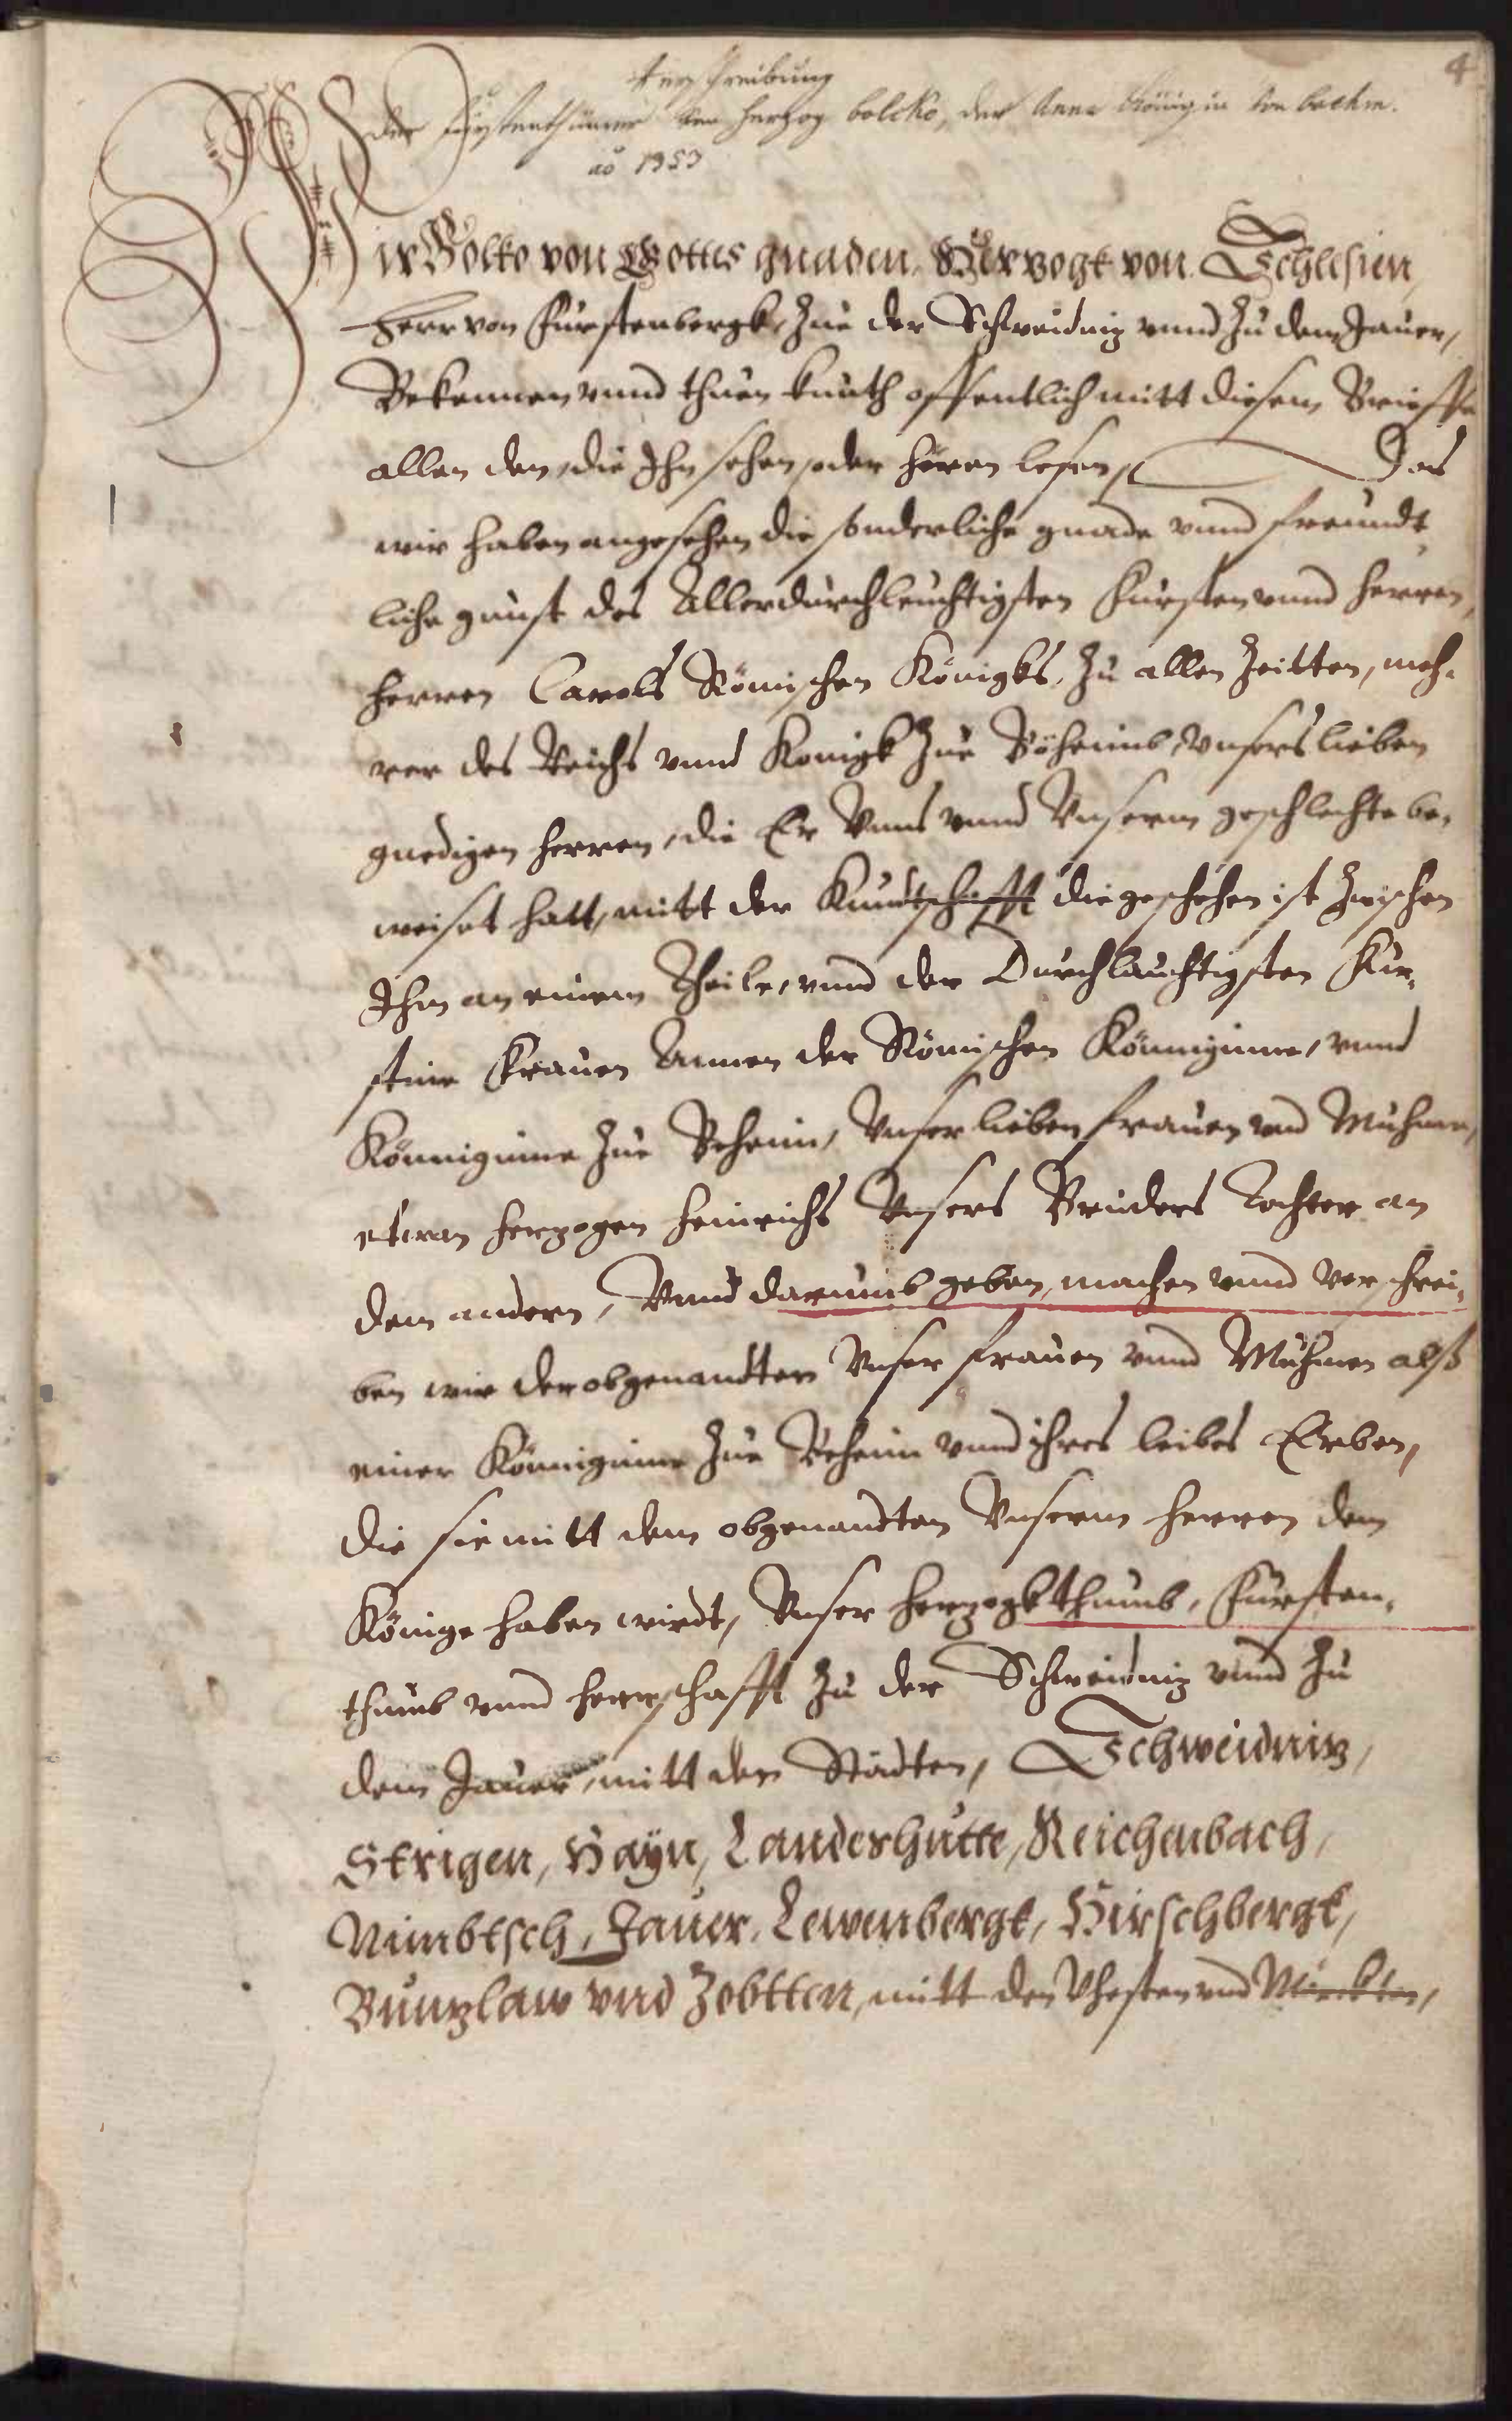 4
Verschreibung
der Fürstenthümer von Herzog bolcko, der Anna Königin von boehm.
aō 1353
Wir Bolko von Gottes gnaden, Herzogk von Schlesien,
Herr von Fürstenbergk, Zue der Schweidniz vnnd Zu dem Jauer,
Bekennen vnnd thuen kunth offentlich mitt diesem Brieffe
allen den, die Ihn sehen oder hören lesen, Das
wir haben angesehen die sonderliche gnade vnnd freundt,
liche gunst des Allerdurchleuchtigsten Fürsten vnnd Herren,
Herren Carols Römischen Königks, Zu allen Zeitten, meh,
rer des Reichs vnnd Konigk Zue Böheimb, vnsers lieben
gnedigen Herren, die Er Vnns vnnd Vnserm geschlechte be,
weiset hatt, mitt der Kundtschafft die geschehen ist Zwischen
Ihm an einem Theile, vnnd der Durchlauchtigsten Für,
stin Frauen Annen der Römischen Könniginne, vnnd
Könniginne Zue Beheim, Vnser lieben Frauen vnd Muhmen,
etwan Herzogen Heinrichs Vnsers Bruders Tochter an
dem andern, Vnnd darumb geben, machen vnnd verschrei,
ben wir der obgenandten Vnser Frauen vnnd Muhmen alß
einer Könniginne Zue Beheim vnnd ihres leibes Erben,
die sie mitt dem obgenandten Vnserm Herren dem
Könige haben wirdt, Vnser Herzogkthumb, Fürsten,
thumb vnnd Herrschafft Zu der Schweidniz vnnd Zu
dem Jauer, mitt den Städten, Schweidniz,
Strigen, Hayn, Landeshutte, Reichenbach,
Nimbtsch, Jauer, Lewenbergk, Hirschbergk,
Bunzlaw vnd Zobtten, mitt den Vhesten vnd Märkten,